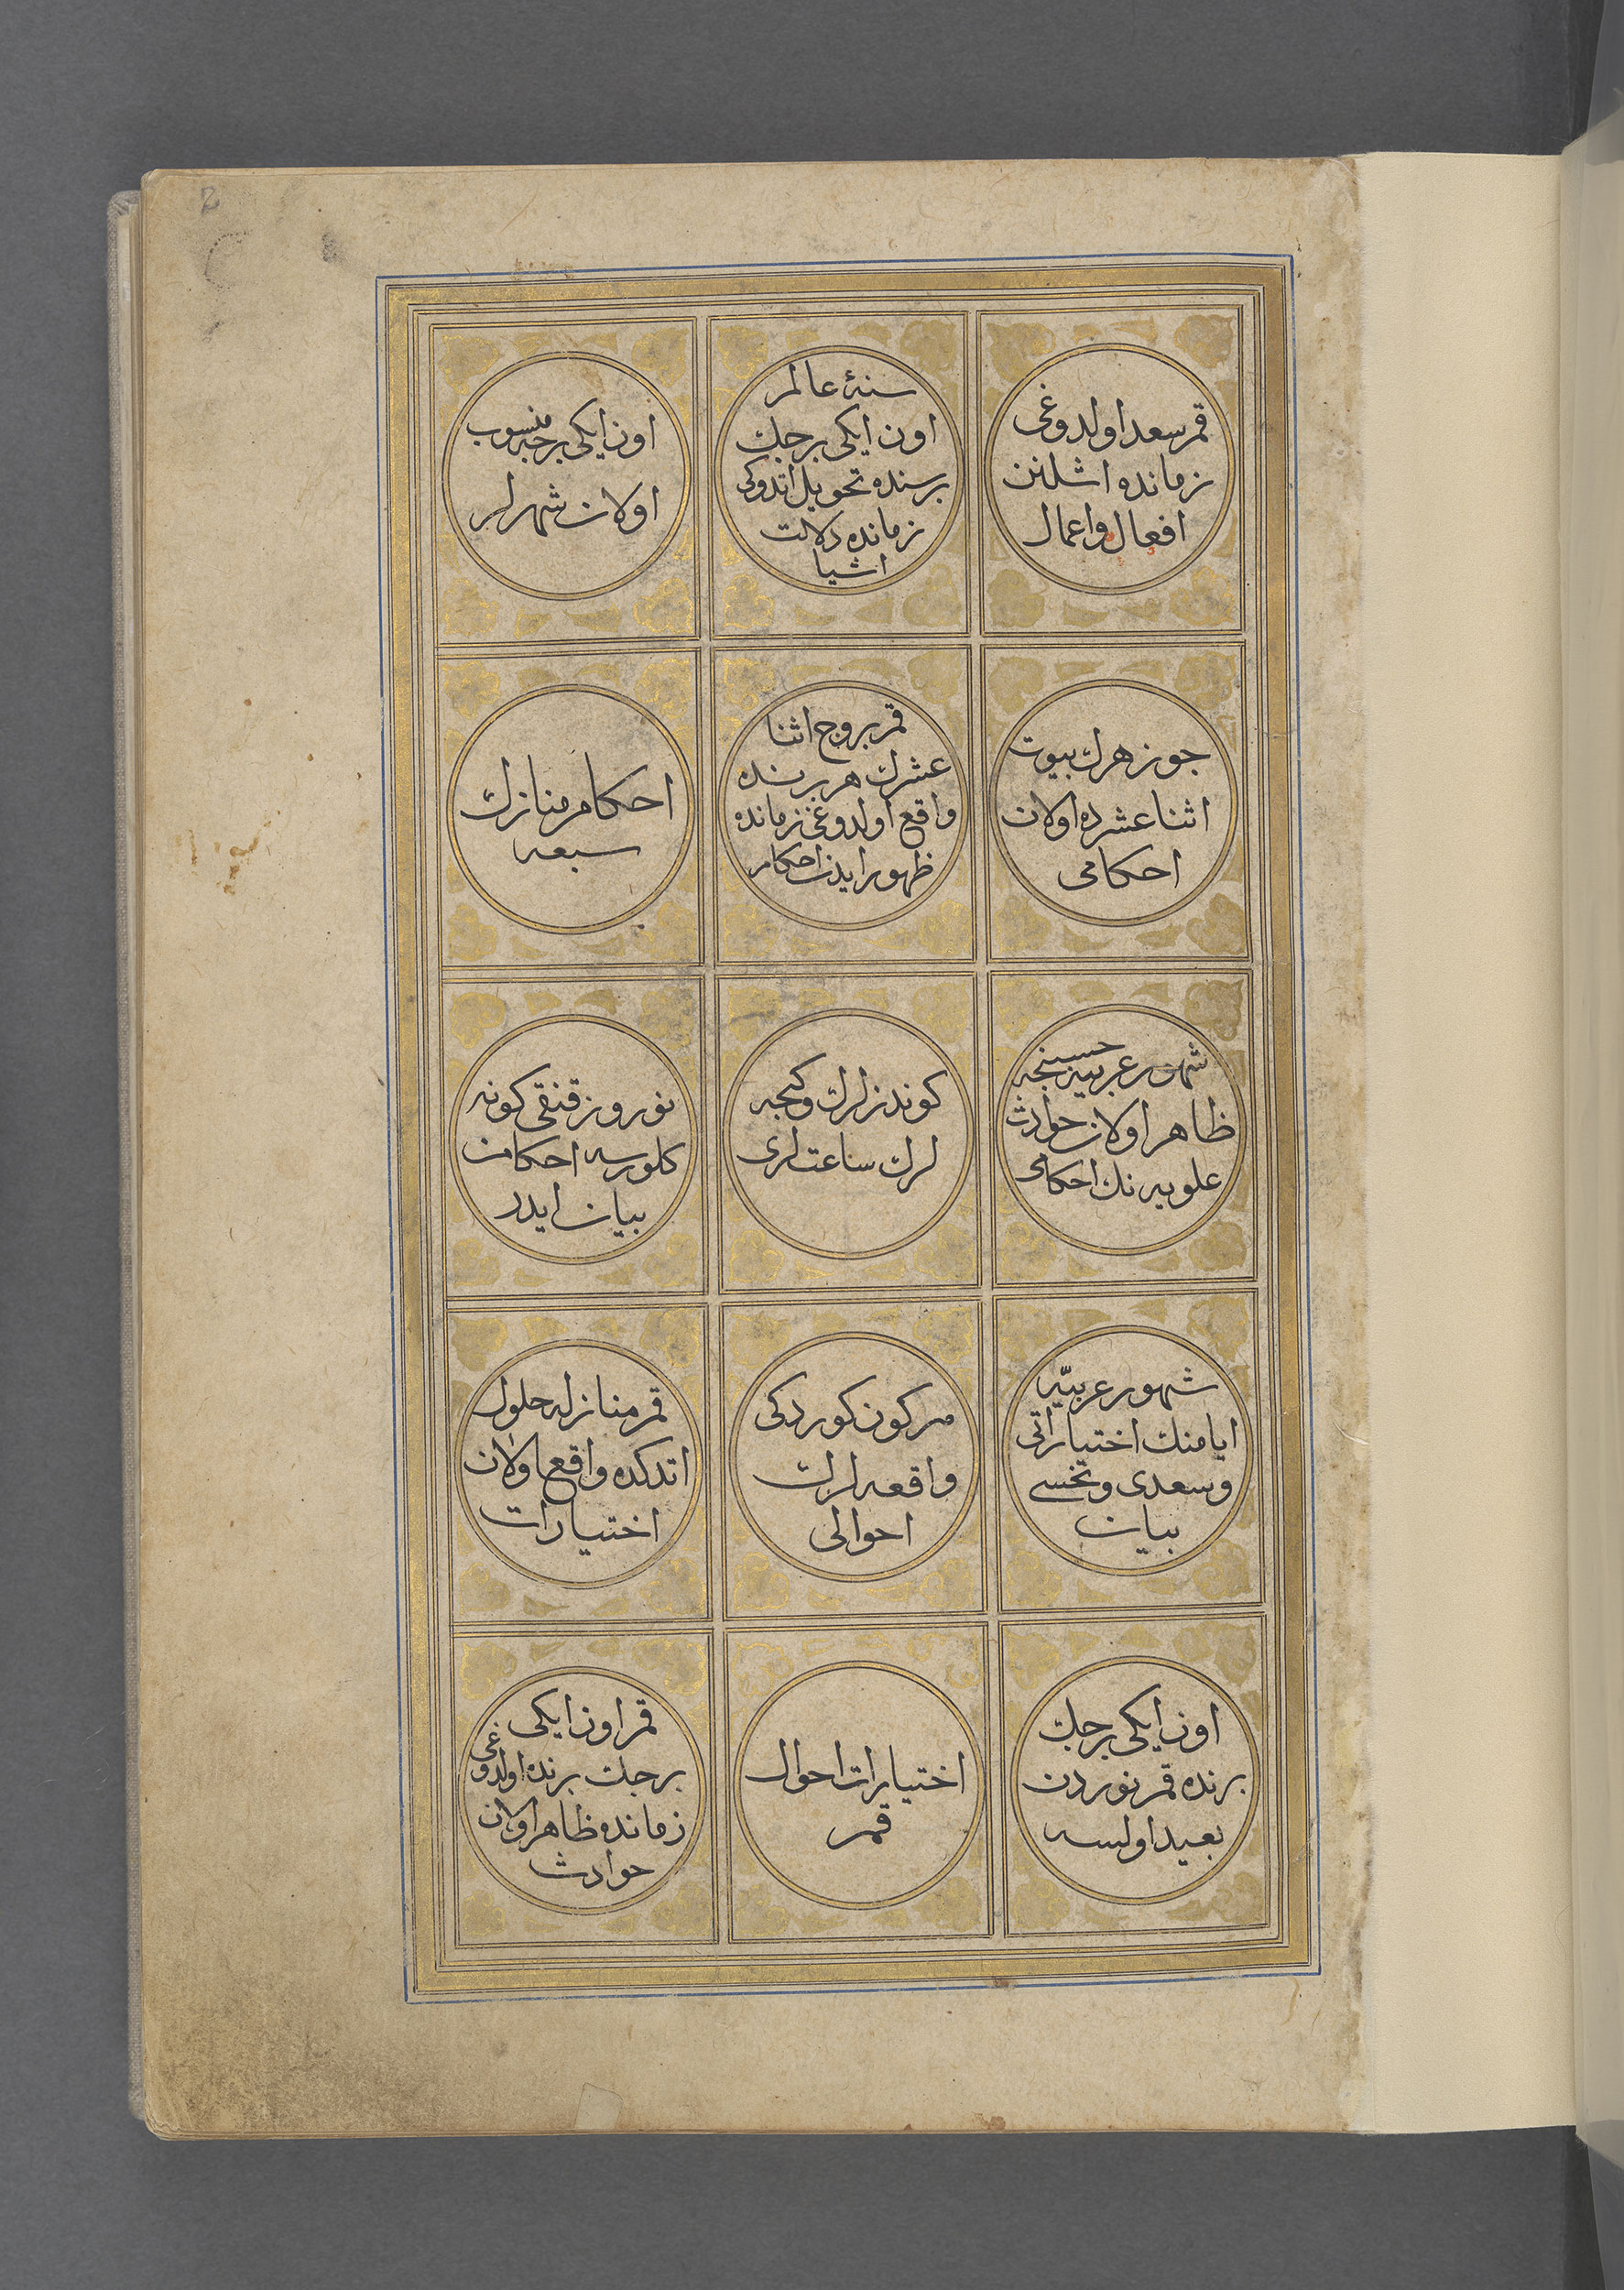 2
قمر سعد اولدوغى
زمانده اشلنن
افعال واعمال
سنۀ عالم
اون ايكى برجك
برسنده تحويل اتدوكى
زمانده دلالت
اشيا
اون ايكى برجه منسوب
اولان شهرلر
جوزهرك بيوت
اثنا عشرده اولان
احكامى
قمر بروج اثنا
عشرك هر برنده
واقع اولدوغى زمانده
ظهور ايدن احكام
احكام منازك
سبعه
شهور عربيه حسبنجه
ظاهر اولان حوادث
علويه نك احكامى
كوندزلرك وكيجه
لرك ساعتلرى
نوروز قنقى كونه
كلورسه احكامن
بيان ايدر
شهور عربيّه
ايامنك اختياراتى
وسعدى ونحسى
بيان
هر كون كوردكى
واقعه لرك
احوالى
قمر منازله حلول
اتدكده واقع اولان
اختيارات
اون ايكى برجك
برنده قمر نوردن
بعيد اولسه
اختيارات احوال
قمر
قمر اون ايكى
برجك برنده اولدوغى
زمانده ظاهر اولان
حوادث